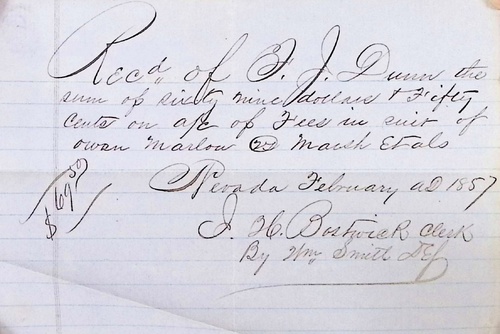 Recd of F. J. Dunn the
sum of sixty nine dollars & Fifty
Cents on a/c of Fees in suit of
Owan Marlow vs Marsh Et als
Nevada February AD 1857
$69.50
J. H. Bostwick Clerk
By Wm Smith Def